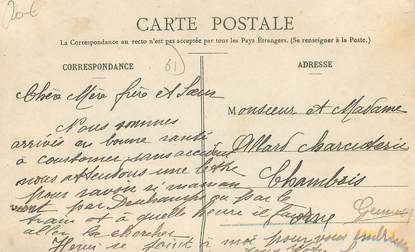 20€
CARTE POSTALE
La Correspondance au recto n'est pas acceptée par tous les Pays Étrangers. (Se renseigner à la Poste.)
CORRESPONDANCE
61
ADRESSE
Chère Mère frère et Sœur
Nous sommes
arrivés en bonne santé
à coustomes sans accident
nous attendons une lettre
pour savoir si maman
vient par Deuxhamps ou par le
train et à quelle heure il faudra
aller la chercher
Henri se joint à moi pour vous embrasser
Monsieur et Madame
Allard charcuterie
Chambois
Orne